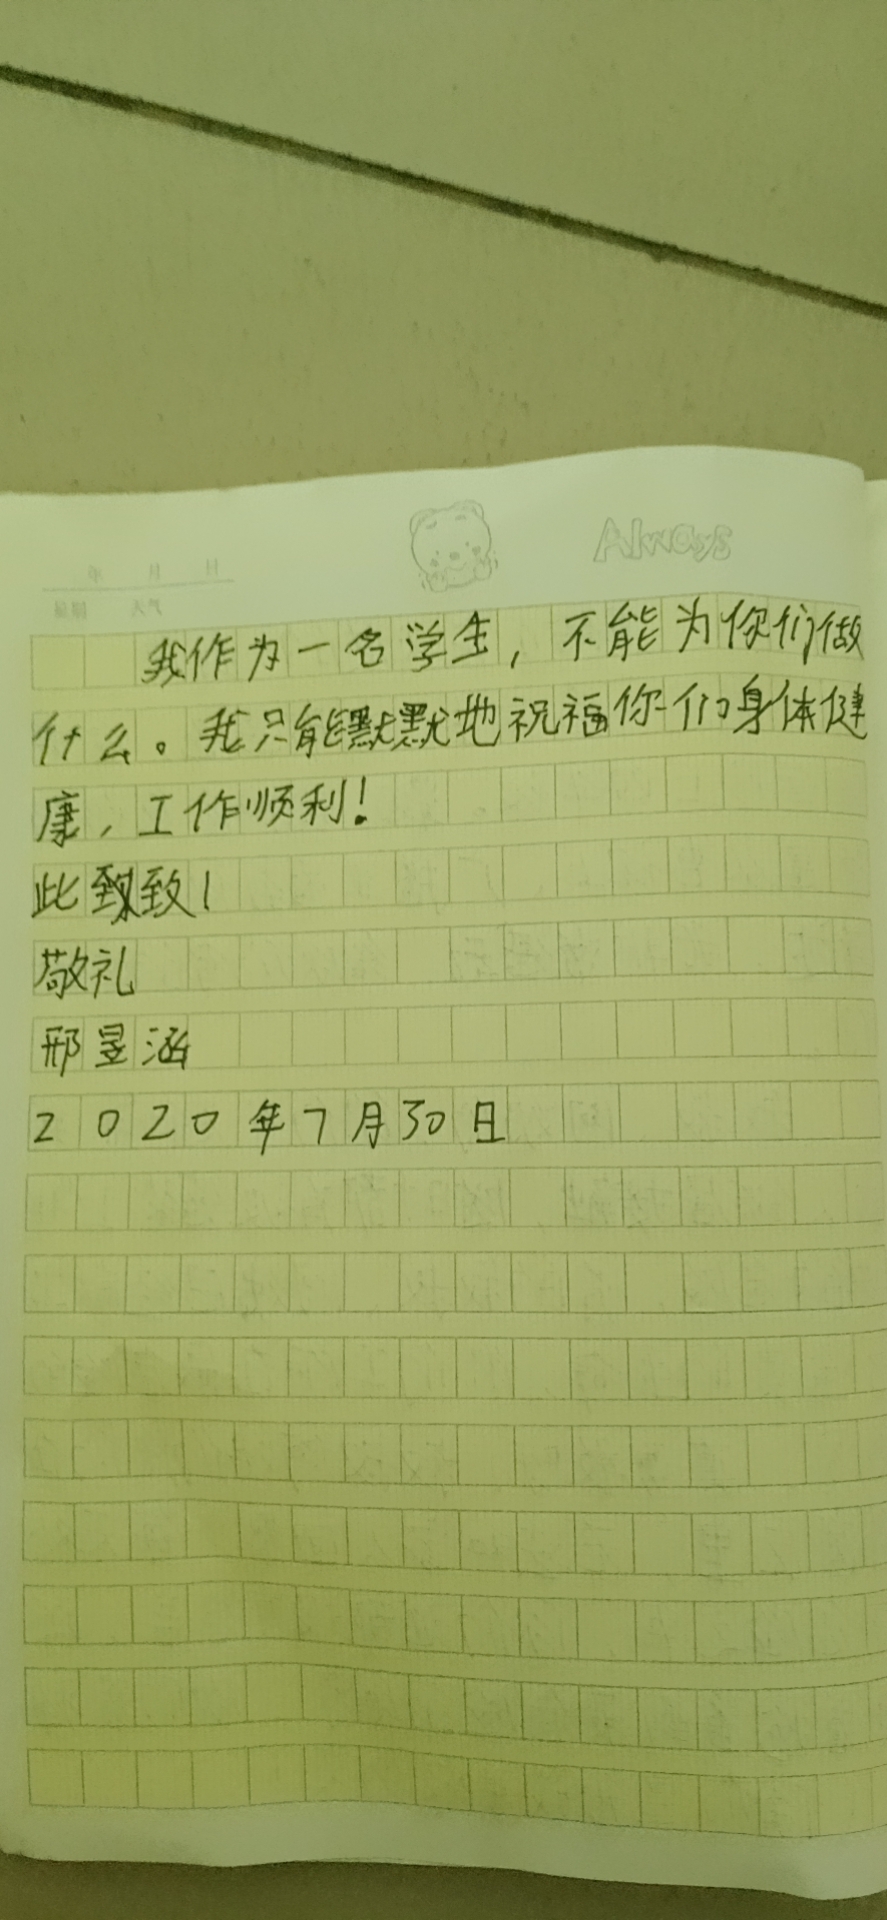 Always
年 月 日
星期 天气
我作为一名学生，不能为你们做
什么。我只能默默地祝福你们身体健
康，工作顺利！
此致！
敬礼
邢昱涵
2020年7月30日